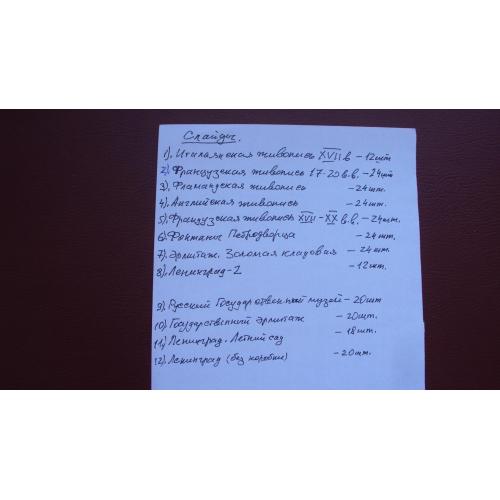 Слайды.
1). Итальянская живопись XVII в - 12шт
2). Французская живопись 17-20 в.в. - 24шт
3). Фламандская живопись - 24шт.
4). Английская живопись - 24шт.
5). Французская живопись XVII - XX в.в. - 24шт.
6). Фонтаны Петродворца - 24шт.
7). Эрмитаж. Золотая кладовая - 24шт.
8). Ленинград-2 - 12шт.
9). Русский Государственный музей - 20шт
10). Государственный Эрмитаж - 20шт.
11). Ленинград. Летний сад - 18шт.
12). Ленинград (без коробки) - 20шт.